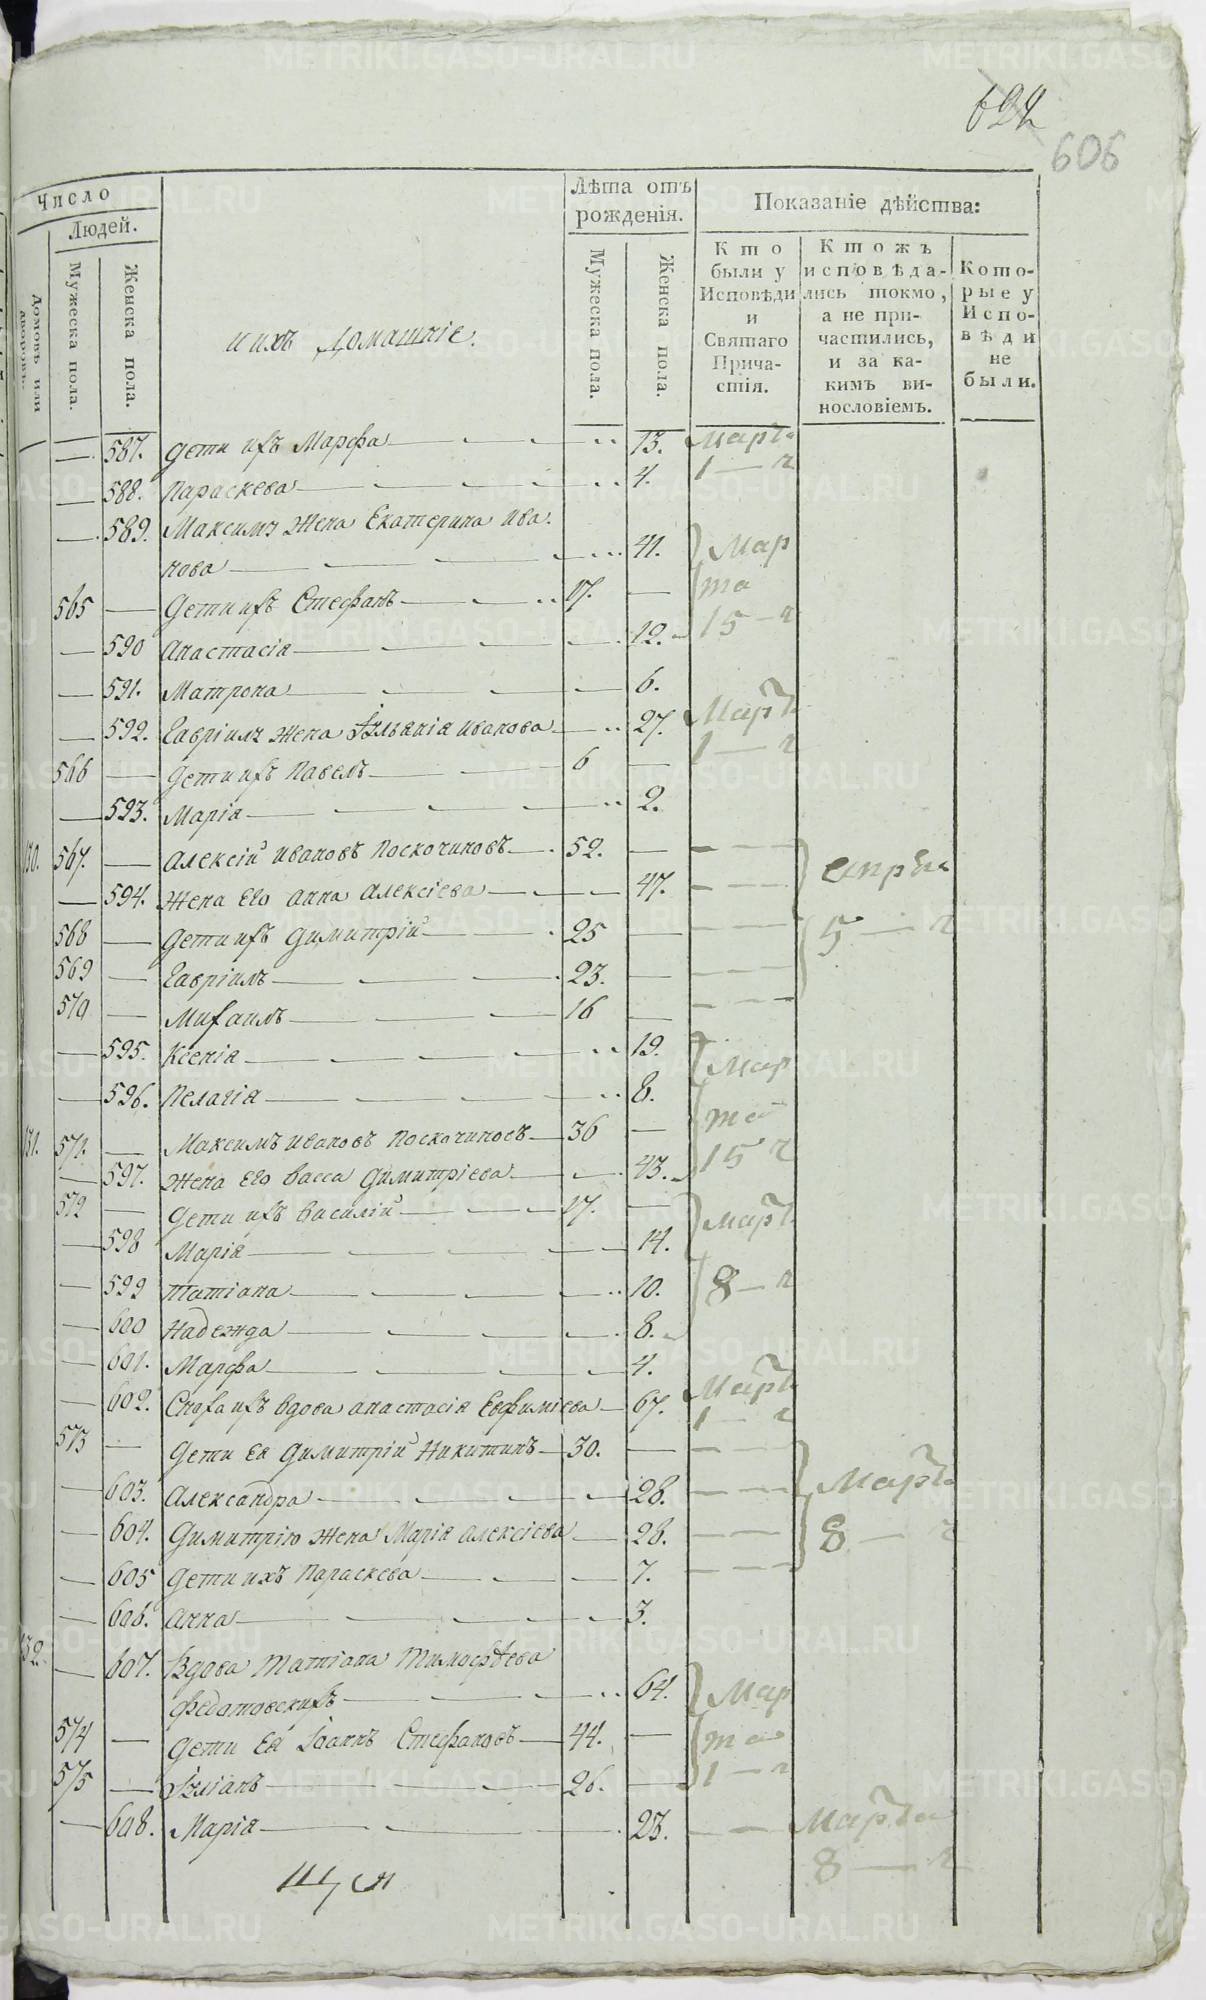 622
606
Число
Людей.
Домовъ или дворовъ.
Мужеска пола.
Женска пола.
и ихъ домашніе.
Лѣта отъ рожденія.
Мужеска пола.
Женска пола.
Показаніе дѣйства:
Кто были у Исповѣди и Святаго Причастія.
Ктожъ исповѣдались токмо, а не причастились, и за какимъ винословіемъ.
Которые у Исповѣди не были.
— 587. дети ихъ Марфа — 13. Марта
— 588. Параскева — 4. 1 — ч
— 589. Максимъ жена Екатерина Ива
нова — 41. Мар
565 — Дети ихъ Стефанъ — 17. — та
— 590 Анастасія — 12. 15 — ч
— 591. Матрона — 6.
— 592. Гавріилъ жена Іуліанія Иванова — 27. Марта
566 — Дети ихъ Павелъ — 6 — 1 — ч
— 593. Марія — 2.
130. 567. — Алексій Ивановъ Поскочиновъ — 52. —
— 594. Жена его Анна Алексіева — 47.
568 — Дети ихъ Димитрій — 25 — 5 — ч
569 — Гавріилъ — 23. —
570 — Михаилъ — 16 —
— 595. Ксенія — 19. Мар
— 596. Пелагія — 8. та
131. 571. — Максимъ Ивановъ Поскочиновъ — 36 — 15 ч
— 597. Жена его Васса Димитріева — 43.
572 — Дети ихъ Василій — 17. — Марта
— 598 Марія — 14.
— 599 Татіана — 10. 8 — ч
— 600 Надежда — 8.
— 601. Марфа — 4.
— 602. Сноха ихъ вдова Анастасія Евфиміева — 67. Марта 1 — ч
573 — Дети ея Димитрій Никитинъ — 30. —
— 603. Александра — 28. Марта
— 604. Димитрію жена Марія Алексіева — 28. 8 — ч
— 605 Дети ихъ Параскева — 7.
— 606. Анна — 3.
132. — 607. Вдова Татіана Тимофѣева
Федотовскихъ — 64. Мар
574 — Дети ея Іоаннъ Стефановъ — 44. — та
575 — Іуліанъ — 26. — 1 — ч
— 608. Марія — 23. — Марта
8 — ч
METRIKI.GASO-URAL.RU